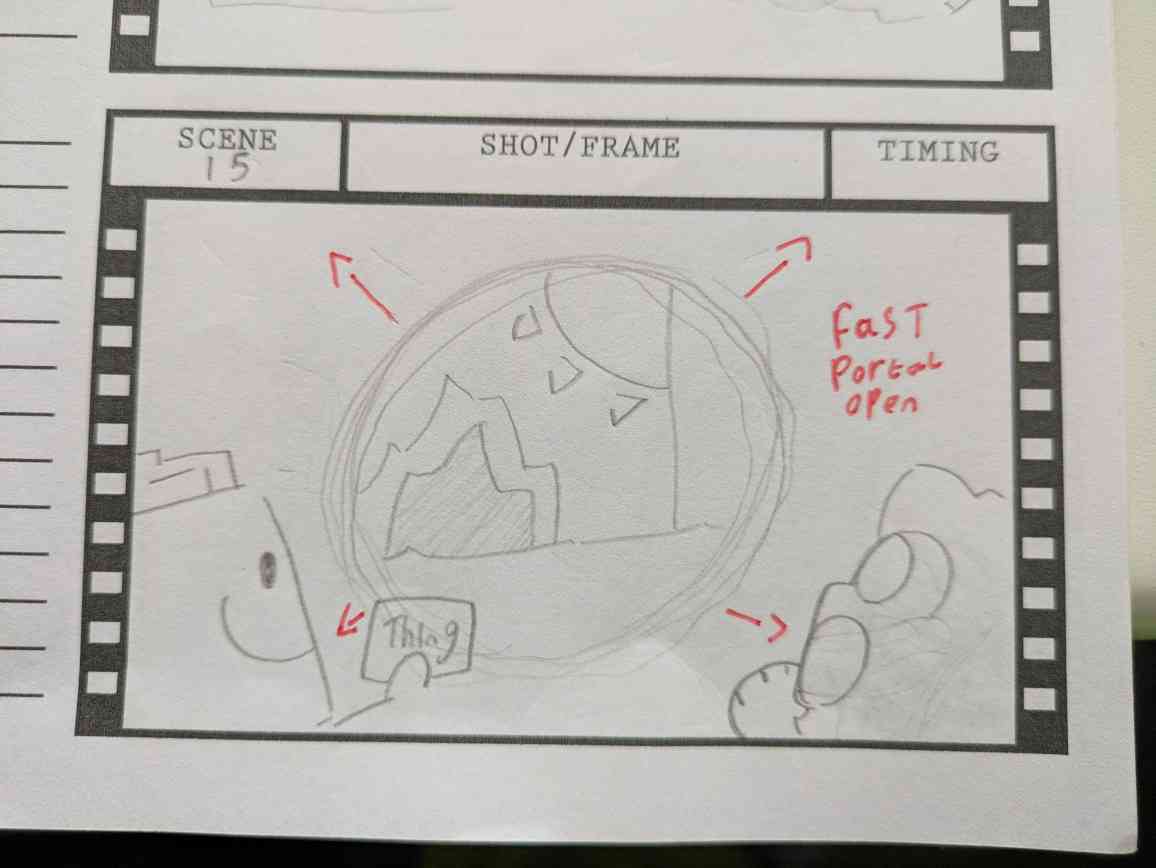 SCENE
15
SHOT/FRAME
TIMING
FaST
Portal
OPen
Thing